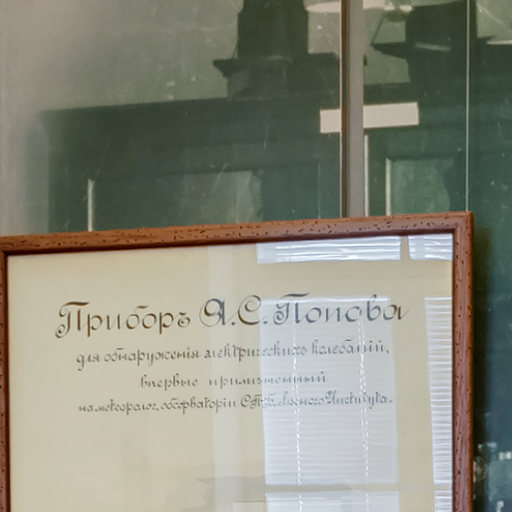 Приборъ А.С. Попова
для обнаруженія электрическихъ колебаній,
впервые примѣненный
на метеоролог. обсерваторіи С.П.Б. Лѣсного Института.